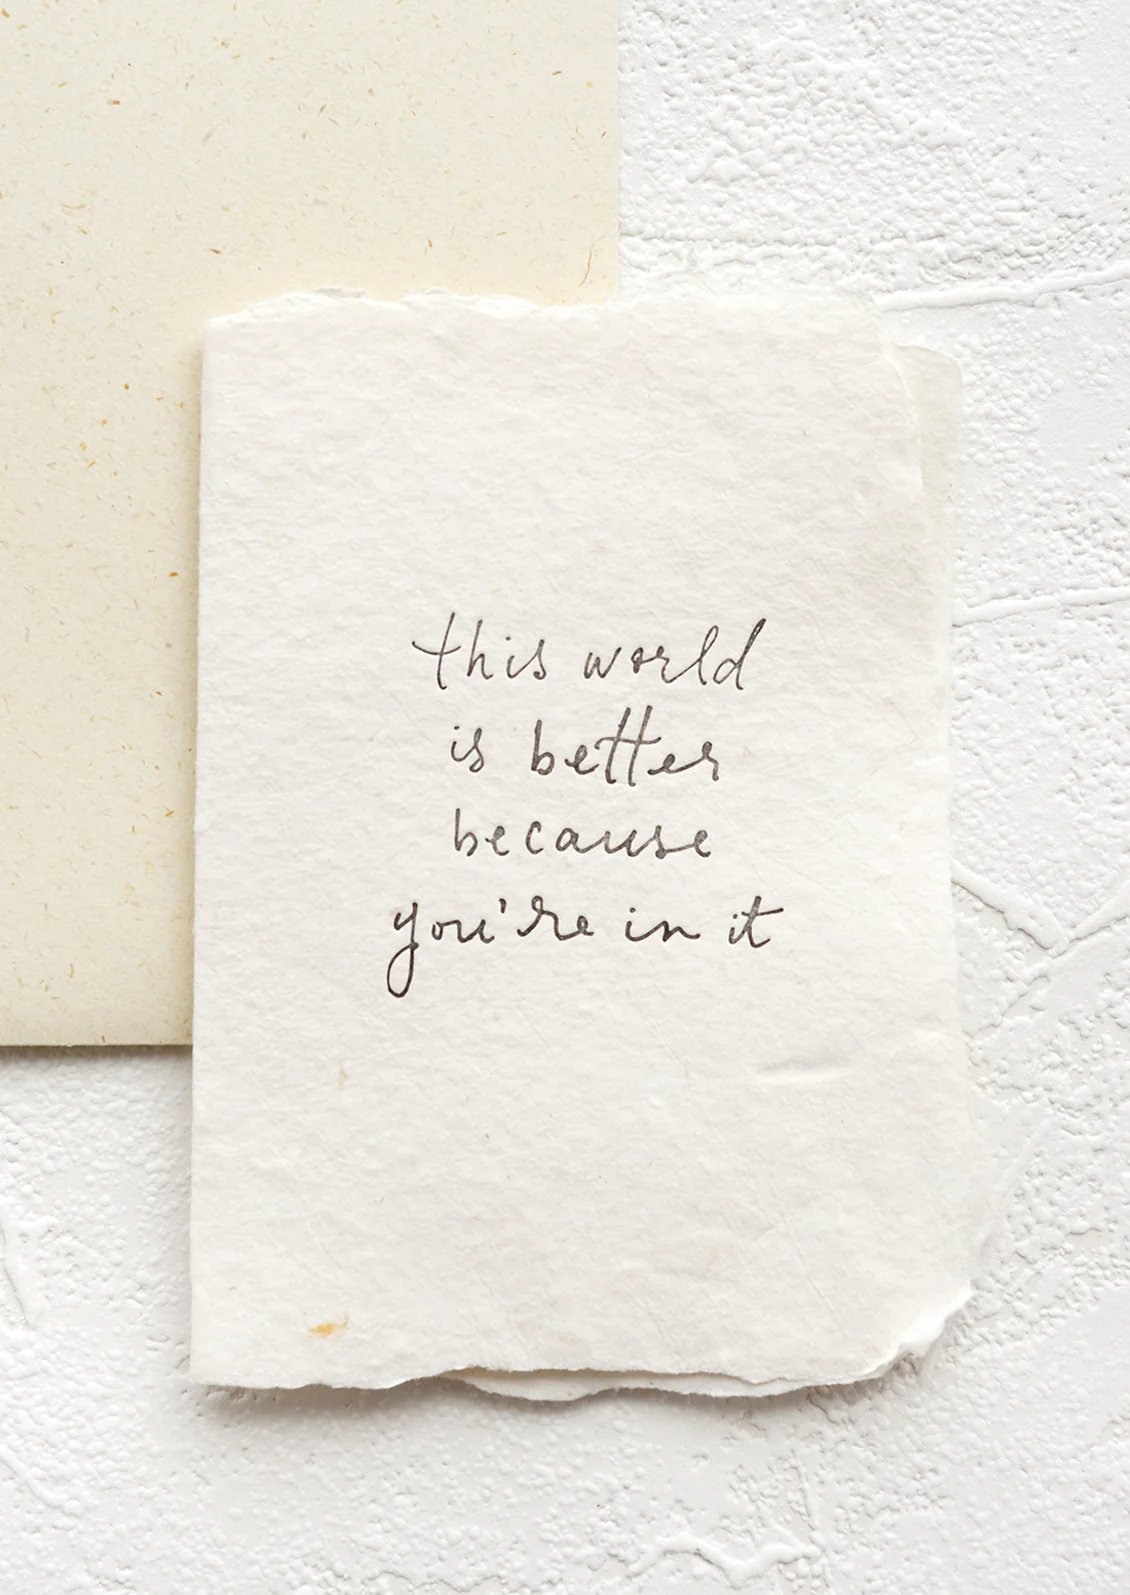 this world
is better
because
you're in it